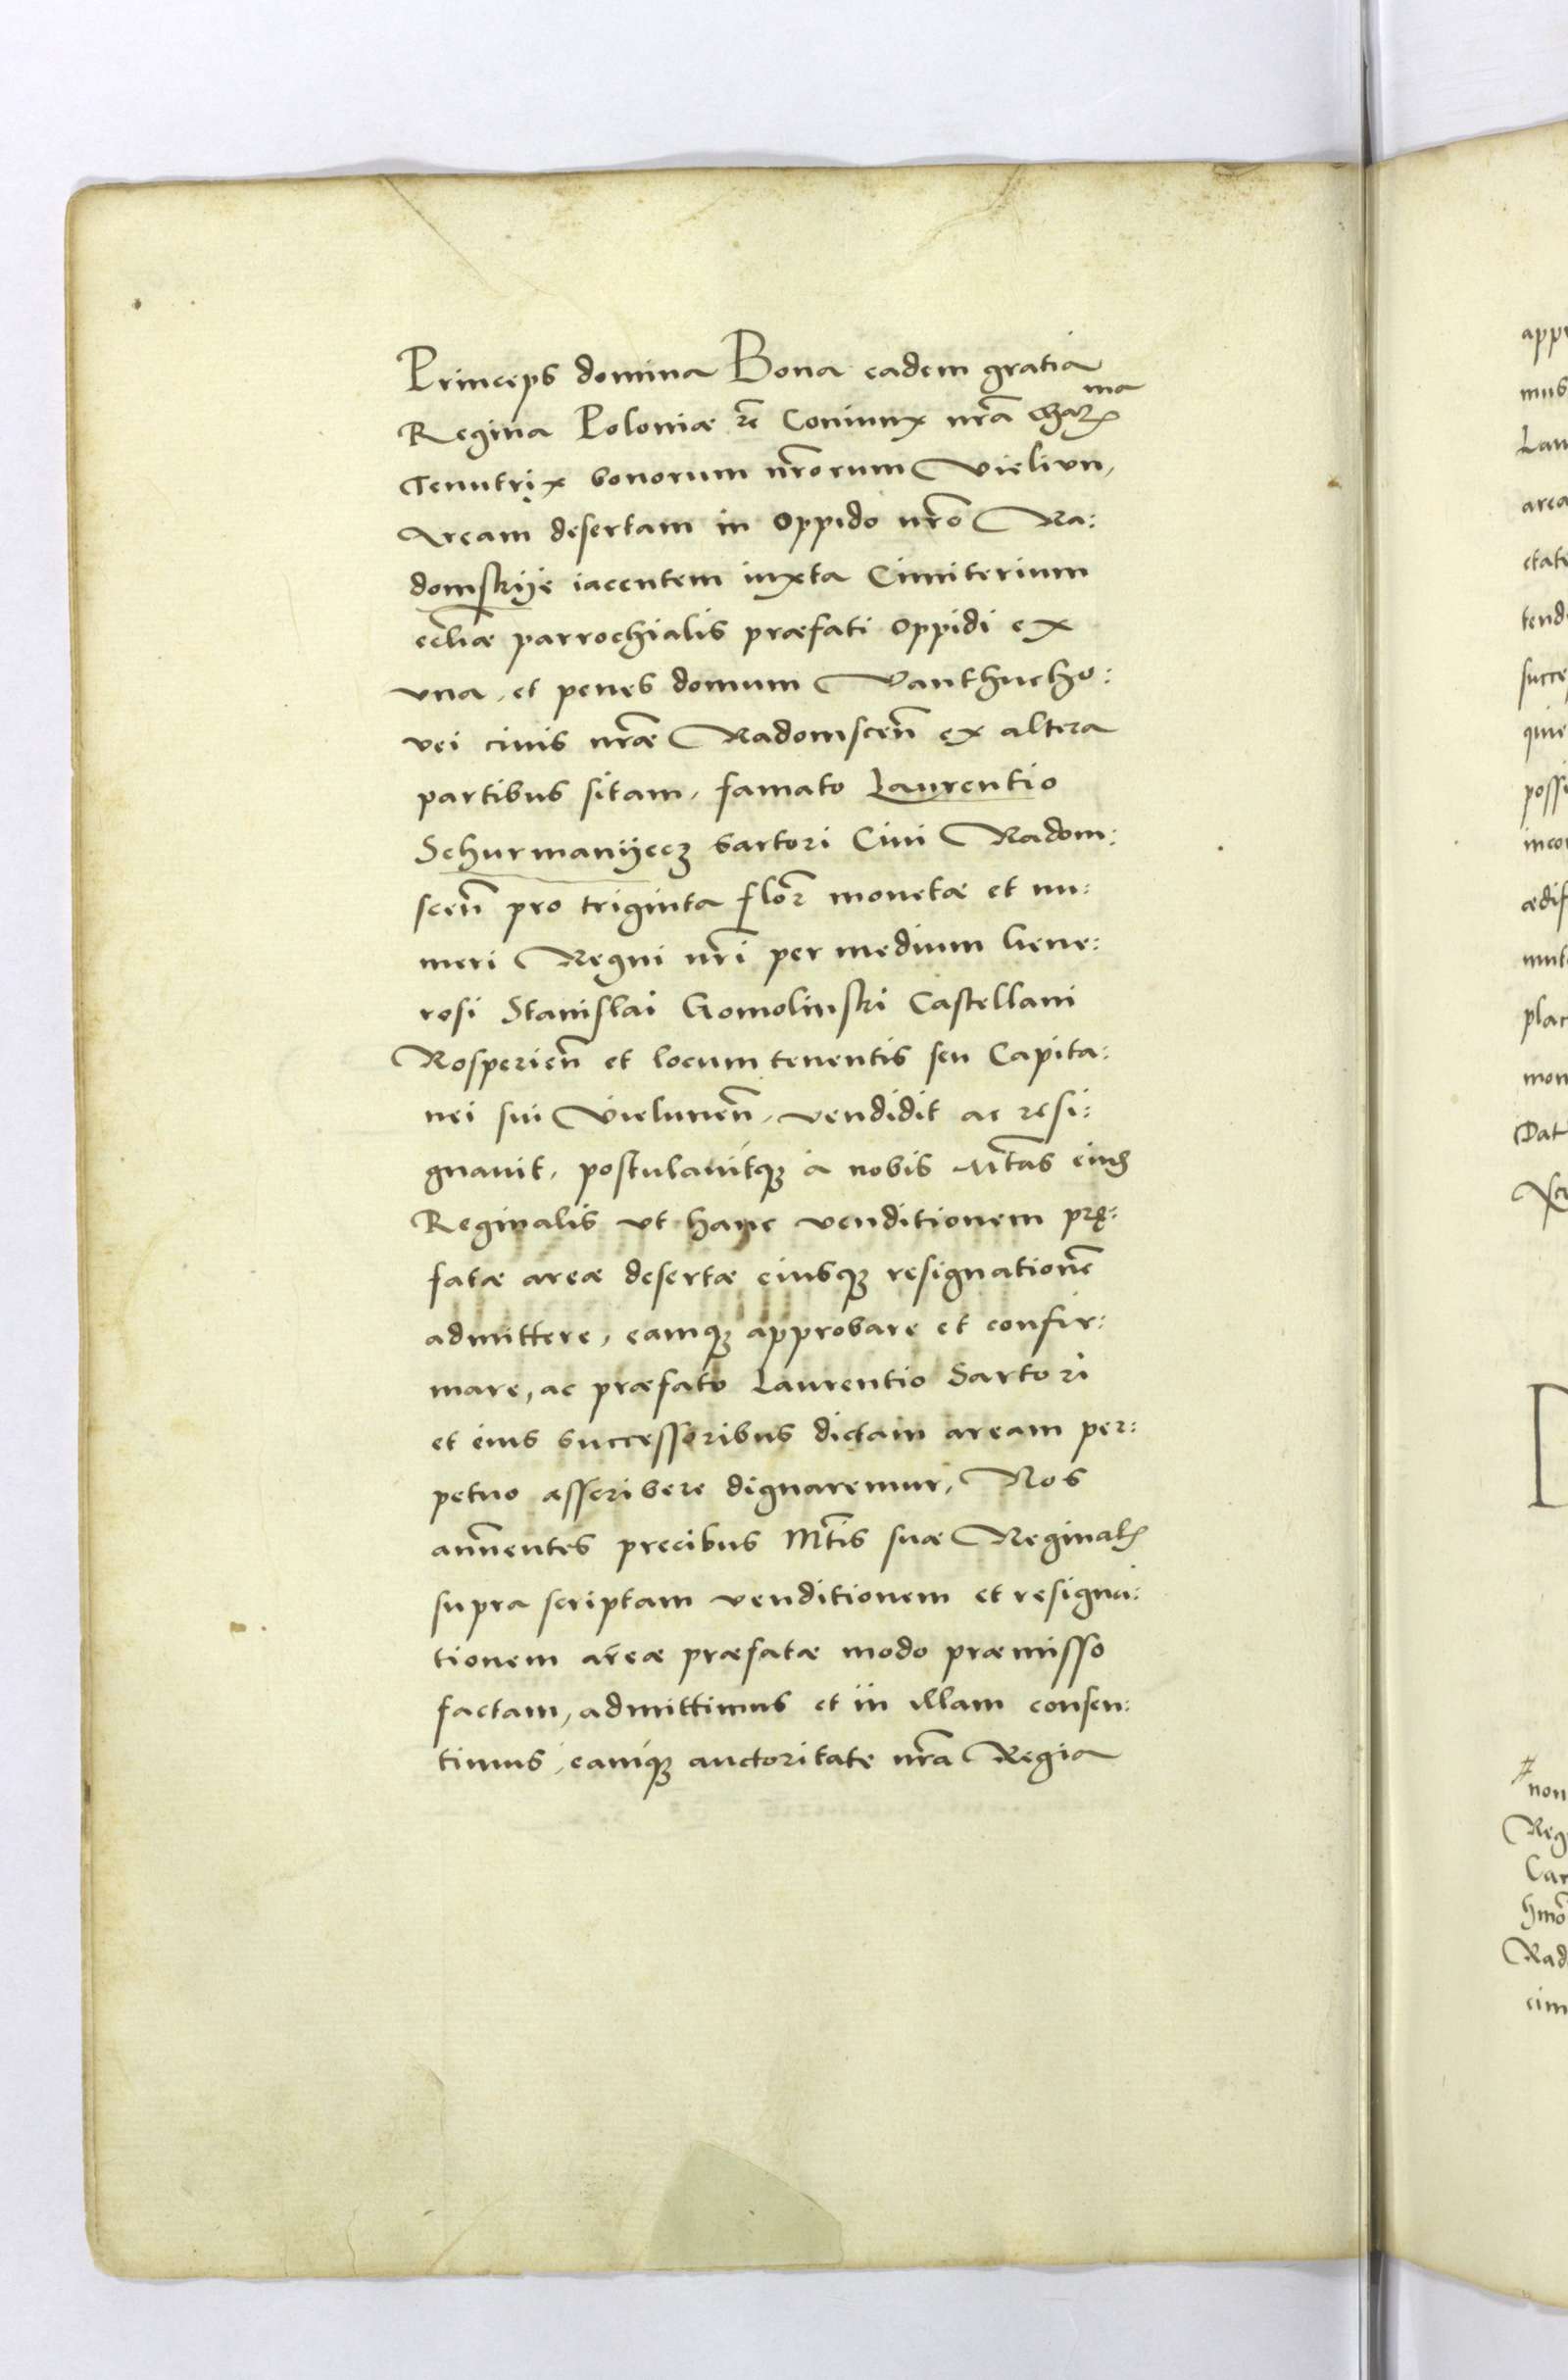 Princeps domina Bona eadem gratia
Regina Poloniæ etc̃ Coniunx nrã Char^ma
Tenutrix bonorum nrõrum Vieliun,
Aream desertam in Oppido nrõ Ra:
domskije iacentem iuxta Cimiterium
ecc̃liæ parrochialis præfati oppidi ex
vna, et penes domum Vanthucho:
vei ciuis nrãe Radomscen̄ ex altera
partibus sitam, famato Laurentio
Schurmanijecz sartori Ciui Radom:
scen̄ pro triginta flor̃ monetæ et nu:
meri Regni nrĩ per medium Gene:
rosi Stanislai Gomolinski Castellani
Rosperien̄ et locum tenentis seu Capita:
nei sui Vielunen̄, vendidit ac resi:
gnauit, postulauitq; à nobis Mtãs eius
Reginalis vt hanc venditionem prę:
fatæ areæ desertæ eiusq; resignationẽ
admittere, eamq; approbare et confir:
mare, ac præfato Laurentio Sartori
et eius successoribus dictam aream per:
petuo asscribere dignaremur, Nos
annuentes precibus Mtĩs suæ Reginal̃
supra scriptam venditionem et resigna:
tionem areæ præfatæ modo præmisso
factam, admittimus et in illam consen:
timus, eamq; auctoritate nrã Regia
app
mus
Lau
area
etate
tend
succe
quie
possi
incor
ædif
mul
plac
mon
Dat
non
Reg
Car
hmõ
Rad
cim